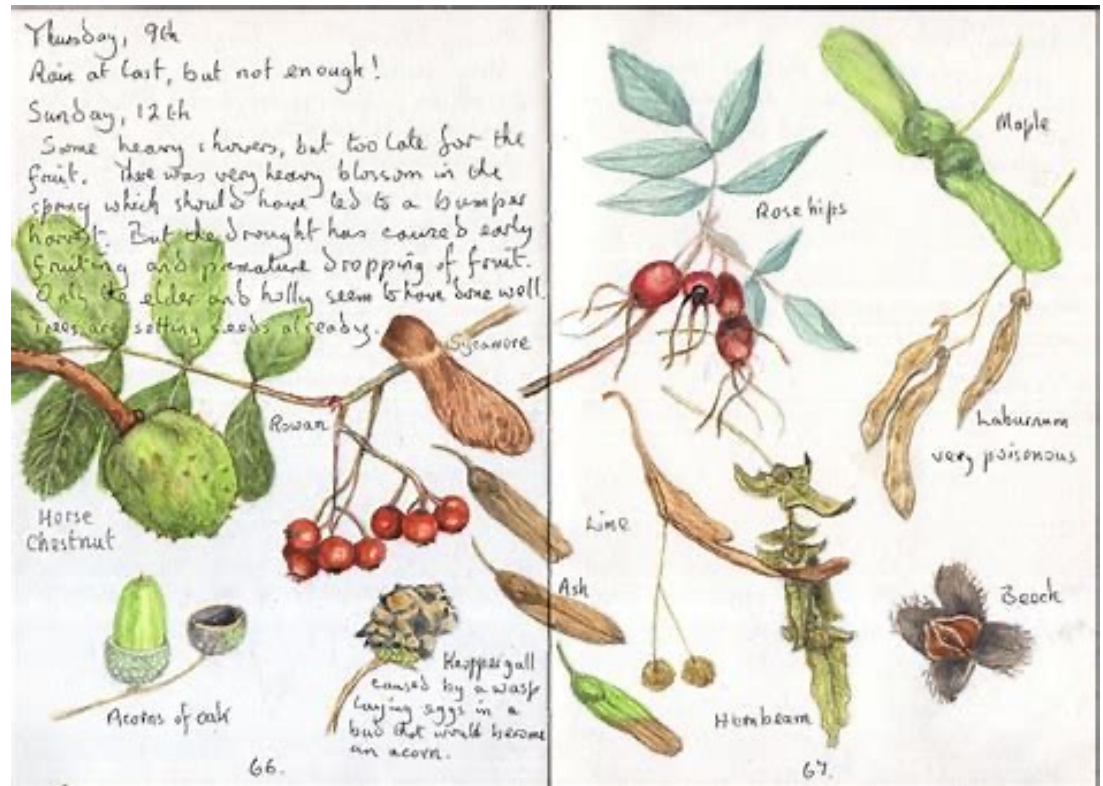 Thursday, 9th
Rain at last, but not enough!
Sunday, 12th
Some heavy showers, but too late for the
fruit. There was very heavy blossom in the
spring which should have led to a bumper
harvest. But the drought has caused early
fruiting and premature dropping of fruit.
Only the elder and holly seem to have done well.
Trees are setting seeds already.
Sycamore
Rowan
Horse
Chestnut
Acorns of oak
Knopper gall
caused by a wasp
laying eggs in a
bud that would become
an acorn.
66.
Maple
Rosehips
Laburnum
very poisonous
Lime
Ash
Beech
Hornbeam
67.